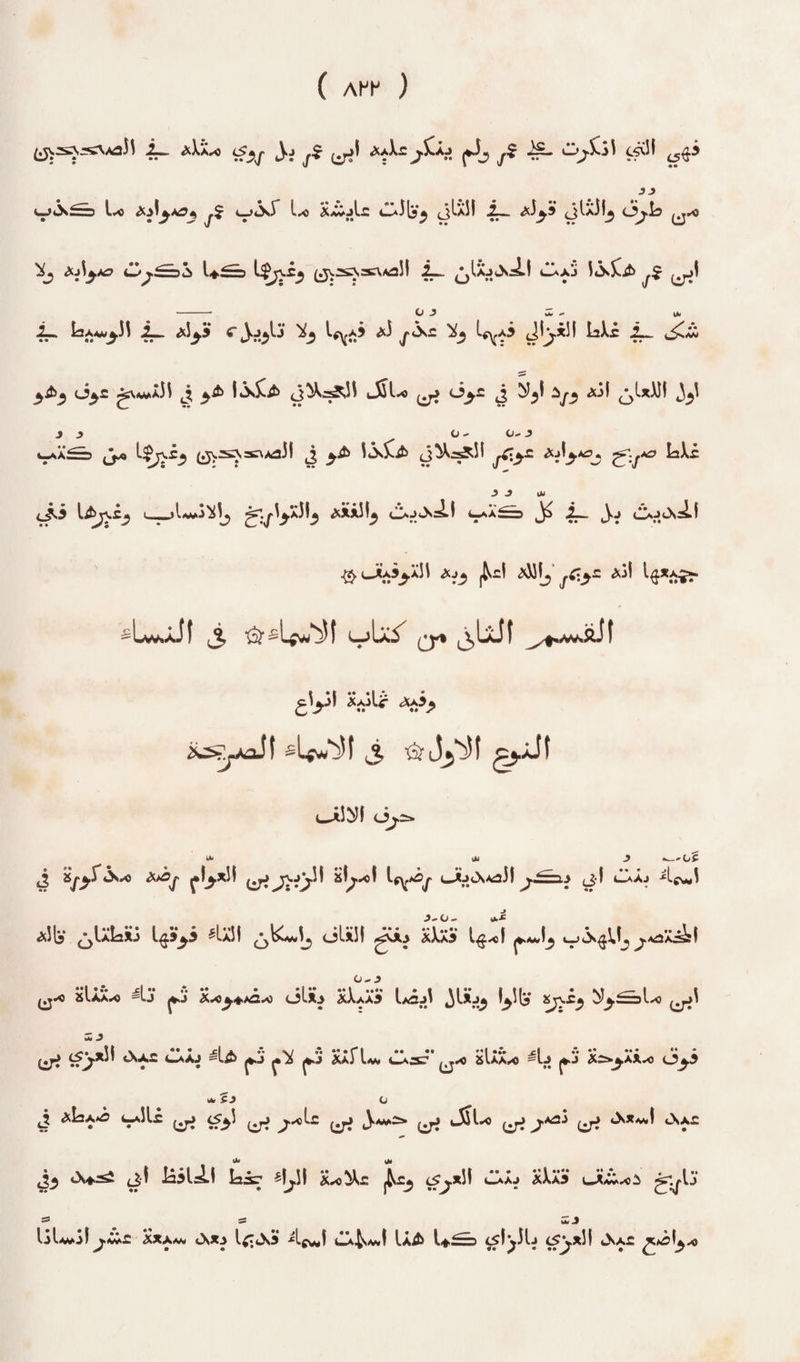 ( ٨٢٢ )
فهي التي انكرت على عمر ولم ينكر عليه ابن عمر بل روي مثله في الصحيحين
من طرق والثاني قوله في الثاني وقالت عايشة ما كذب عمر وصوابه ما كذب
ابن عمر هكذا ثبت الحديثان في الصحيحين وغيرها كما ذكرت صوابه ولا
شك في غلط الغزالي فيهما ولا عذر له فيهما ولا تاويل ء قوله في الوسيط في
اول اللعان انه ورد اولا في عوف بن مالك العجلاني هكذا هو في النسخ عوف وهو
غلط صريح وصوابه عويمر العجلاني هكذا هو في الصحيحين وغيرها من كتب
الحديث بل في كل كتب الحديث والفقه والتواريخ والانساب وغيرها ففي
جميعها انه عويمر والله اعلم وبه التوفيق
القسم الثاني من كتاب الاسماء في النساء
وفيه ثمانية انواع
النوع الاول في الاسماء الصريحة
حرف الالف
اسماء بنت ابي بكر الصديق رضيها امراة الزبير بن العوام رضه مذكورة في
المختصر والمهذب واسم امها قتلة بفتح القاف واسكان التاء فوقها نقطتان قاله
ابن ماكولا وغيره قالوا ويقال ايضا قتيلة بقاف مضمومة ثم تاء مثناة من
فوق مفتوحة ثم ياء مثناة من تحت ساكنة ثم لام ثم هاء بنت عبد العزي بن
عبد اسعد بن نصر بن مالك بن حسل بن عامر بن لوي بن غالب ضبطه في
تاريخ دمشق قتلة بنت العري وعلم علامة الراء بخط الحافظ ابي محمد وفي
مواضع عبد العزي بالزاي كما هنا اسلمت اسماء قديما بعد سبعة عشر انسانا